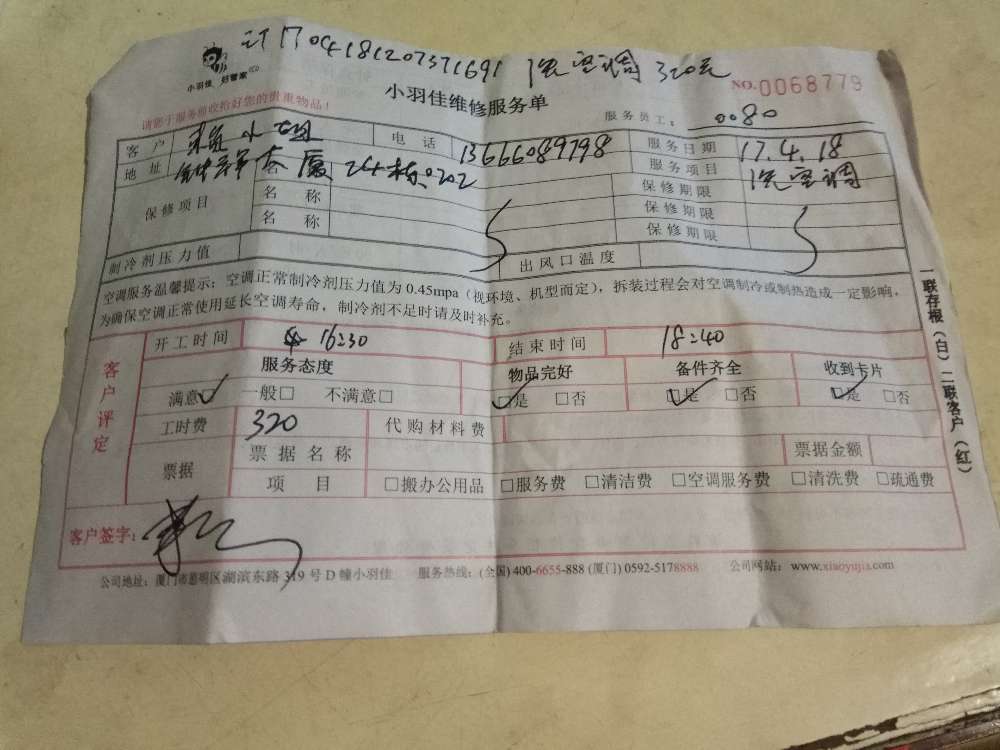 04181207371691 洗空调 320元
小羽佳 好管家
请您于服务前收拾好您的贵重物品！
小羽佳维修服务单
NO.0068779
服务员工： 0080
客户 小 电话 13666089798 服务日期 17.4.18
地址 24栋0202 服务项目 洗空调
保修项目 名称 保修期限
名称 保修期限
保修期限
制冷剂压力值 出风口温度
空调服务温馨提示：空调正常制冷剂压力值为0.45mpa（视环境、机型而定），拆装过程会对空调制冷或制热造成一定影响，
为确保空调正常使用延长空调寿命，制冷剂不足时请及时补充。
客户评定
开工时间 16:30 结束时间 18:40
服务态度 物品完好 备件齐全 收到卡片
满意☑ 一般□ 不满意□ ☑是 □否 ☑是 □否 ☑是 □否
工时费 320 代购材料费
票据 票据名称 票据金额
项目 □搬办公用品 □服务费 □清洁费 □空调服务费 □清洗费 □疏通费
客户签字：
公司地址：厦门市思明区湖滨东路319号D幢小羽佳 服务热线：(全国)400-6655-888 (厦门) 0592-5178888 公司网站：www.xiaoyujia.com
一联存根（白）二联客户（红）